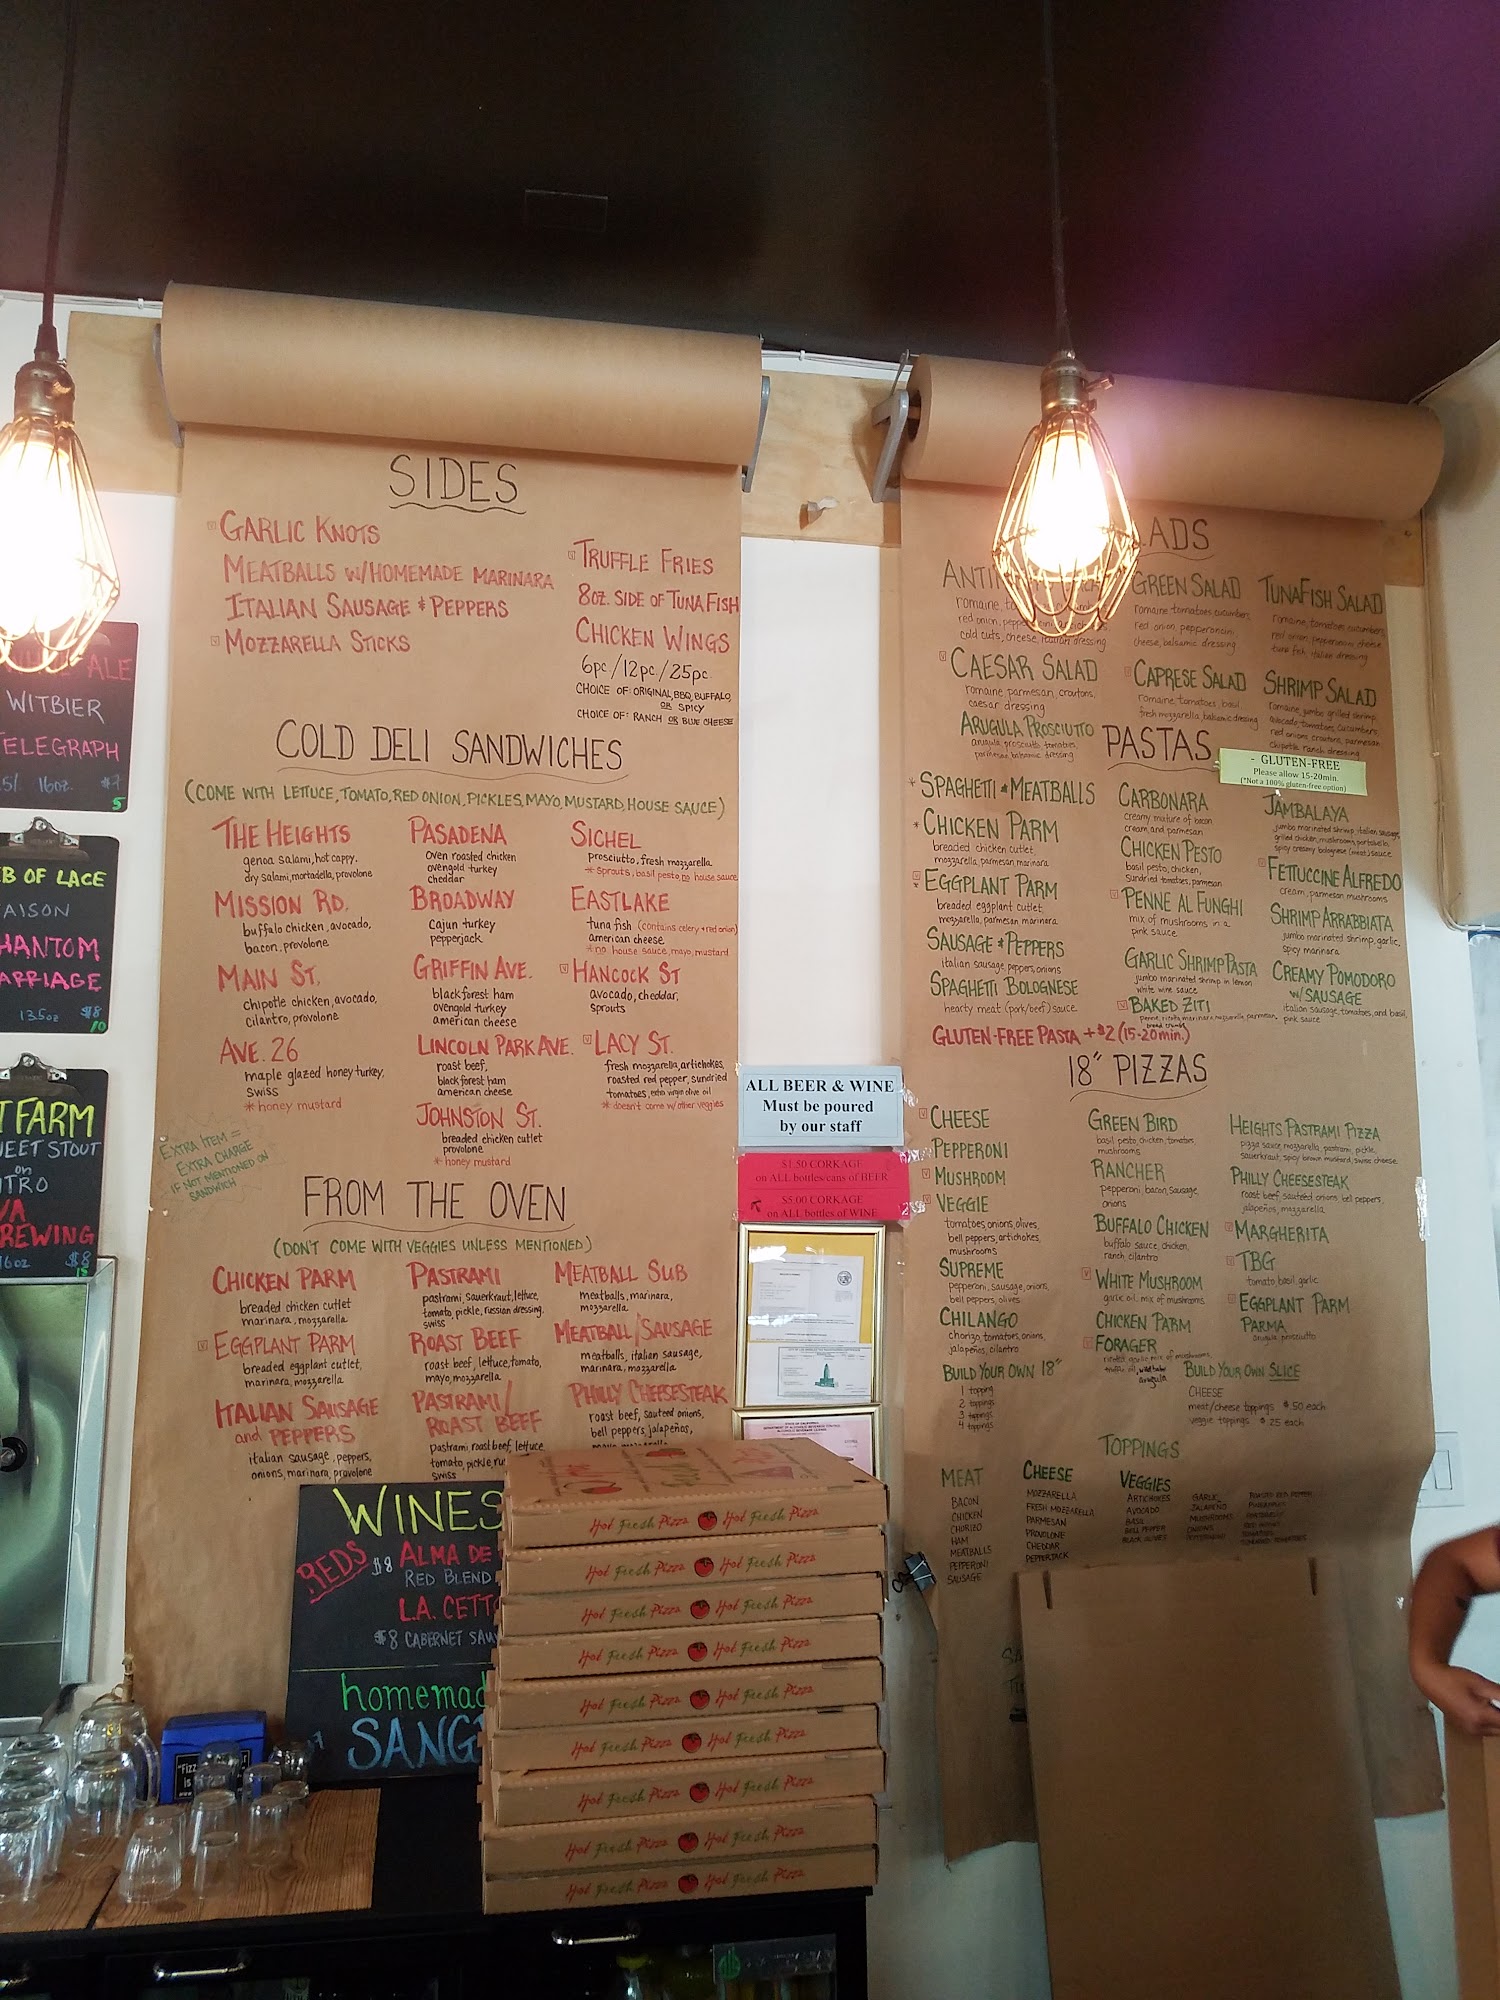 SIDES
GARLIC KNOTS
MEATBALLS W/HOMEMADE MARINARA
ITALIAN SAUSAGE & PEPPERS
MOZZARELLA STICKS
TRUFFLE FRIES
8OZ. SIDE OF TUNA FISH
CHICKEN WINGS
6pc./12pc./25pc.
CHOICE OF: ORIGINAL, BBQ, BUFFALO,
OR SPICY
CHOICE OF: RANCH OR BLUE CHEESE
COLD DELI SANDWICHES
(COME WITH LETTUCE, TOMATO, RED ONION, PICKLES, MAYO, MUSTARD, HOUSE SAUCE)
THE HEIGHTS
genoa salami, hot cappy.
dry salami, mortadella, provolone
MISSION RD.
buffalo chicken, avocado,
bacon, provolone
MAIN ST.
chipotle chicken, avocado,
cilantro, provolone
AVE. 26
maple glazed honey turkey,
swiss
* honey mustard
PASADENA
oven roasted chicken
ovengold turkey
cheddar
BROADWAY
Cajun turkey
pepperjack
GRIFFIN AVE.
black forest ham
ovengold turkey
american cheese
LINCOLN PARK AVE.
roast beef,
black forest ham
american cheese
JOHNSTON ST.
breaded chicken cutlet
provolone
* honey mustard
SICHEL
prosciutto, fresh mozzarella
* sprouts, basil pesto, no house sauce
EASTLAKE
tuna fish (contains celery + red onion)
american cheese
* no house sauce, mayo, mustard
HANCOCK ST
avocado, cheddar,
sprouts
LACY ST.
fresh mozzarella, artichokes,
roasted red pepper, sundried
tomatoes, extra virgin olive oil
* doesn't come w/other veggies
EXTRA ITEM =
EXTRA CHARGE
IF NOT MENTIONED ON
SANDWICH
FROM THE OVEN
(DON'T COME WITH VEGGIES UNLESS MENTIONED)
CHICKEN PARM
breaded chicken cutlet
marinara, mozzarella
EGGPLANT PARM
breaded eggplant cutlet,
marinara, mozzarella
ITALIAN SAUSAGE
and PEPPERS
italian sausage, peppers,
onions, marinara, provolone
PASTRAMI
pastrami, sauerkraut, lettuce,
tomato, pickle, russian dressing,
swiss
ROAST BEEF
roast beef, lettuce, tomato,
mayo, mozzarella
PASTRAMI/
ROAST BEEF
pastrami, roast beef, lettuce
tomato, pickle,
swiss
MEATBALL SUB
meatballs, marinara,
mozzarella
MEATBALL/SAUSAGE
meatballs, italian sausage,
marinara, mozzarella
PHILLY CHEESESTEAK
roast beef, sauteed onions,
bell peppers, jalapeños,
ADS
GREEN SALAD
romaine, tomatoes, cucumbers,
red onion, pepperoncini,
cheese, balsamic dressing
TUNA FISH SALAD
romaine, tomatoes, cucumbers,
red onion, pepperoncini, cheese
tuna fish, italian dressing
cold cuts, cheese, italian dressing
CAESAR SALAD
romaine, parmesan, croutons,
caesar dressing
CAPRESE SALAD
romaine, tomatoes, basil
fresh mozzarella, balsamic dressing
SHRIMP SALAD
romaine, jumbo grilled shrimp,
avocado, tomatoes, cucumbers,
red onions, croutons, parmesan
chipotle ranch dressing
ARUGULA PROSCIUTTO
arugula, prosciutto, tomatoes,
parmesan, balsamic dressing
PASTAS
- GLUTEN-FREE
Please allow 15-20min.
(*Not a 100% gluten-free option)
* SPAGHETTI & MEATBALLS
* CHICKEN PARM
breaded chicken cutlet
mozzarella, parmesan, marinara
* EGGPLANT PARM
breaded eggplant cutlet,
mozzarella, parmesan, marinara
SAUSAGE & PEPPERS
italian sausage, peppers, onions
SPAGHETTI BOLOGNESE
hearty meat (pork/beef) sauce
CARBONARA
creamy mixture of bacon
cream, and parmesan
CHICKEN PESTO
basil pesto, chicken,
sundried tomatoes, parmesan
PENNE AL FUNGHI
mix of mushrooms in a
pink sauce
GARLIC SHRIMP PASTA
jumbo marinated shrimp in lemon
white wine sauce
BAKED ZITI
penne, ricotta, marinara, mozzarella, parmesan,
bread crumbs
JAMBALAYA
jumbo marinated shrimp, italian sausage,
grilled chicken, mushrooms, portabello,
spicy creamy bolognese (meat) sauce
FETTUCCINE ALFREDO
cream, parmesan, mushrooms
SHRIMP ARRABBIATA
jumbo marinated shrimp, garlic,
spicy marinara
CREAMY POMODORO
W/SAUSAGE
italian sausage, tomatoes, and basil,
pink sauce
GLUTEN-FREE PASTA + $2 (15-20min.)
18" PIZZAS
CHEESE
PEPPERONI
MUSHROOM
VEGGIE
tomatoes, onions, olives,
bell peppers, artichokes,
mushrooms
SUPREME
pepperoni, sausage, onions,
bell peppers, olives
CHILANGO
chorizo, tomatoes, onions,
jalapeños, cilantro
BUILD YOUR OWN 18"
1 topping
2 toppings
3 toppings
4 toppings
GREEN BIRD
basil pesto, chicken, tomatoes,
mushrooms
RANCHER
pepperoni, bacon, sausage,
onions
BUFFALO CHICKEN
buffalo sauce, chicken,
ranch, cilantro
WHITE MUSHROOM
garlic oil, mix of mushrooms
CHICKEN PARM
FORAGER
arugula
HEIGHTS PASTRAMI PIZZA
pizza sauce, mozzarella, pastrami, pickle,
sauerkraut, spicy brown mustard, swiss cheese
PHILLY CHEESESTEAK
roast beef, sauteed onions, bell peppers,
jalapeños, mozzarella
MARGHERITA
TBG
tomato, basil, garlic
EGGPLANT PARM
PARMA
arugula, prosciutto
BUILD YOUR OWN SLICE
CHEESE
meat/cheese toppings $.50 each
veggie toppings $.25 each
TOPPINGS
MEAT
BACON
CHICKEN
CHORIZO
HAM
MEATBALLS
PEPPERONI
SAUSAGE
CHEESE
MOZZARELLA
FRESH MOZZARELLA
PARMESAN
PROVOLONE
CHEDDAR
PEPPERJACK
VEGGIES
ARTICHOKES
AVOCADO
BASIL
BELL PEPPER
BLACK OLIVES
GARLIC
JALAPEÑO
MUSHROOMS
ONIONS
ROASTED RED PEPPER
ALL BEER & WINE
Must be poured
by our staff
$1.50 CORKAGE
on ALL bottles/cans of BEER
$5.00 CORKAGE
on ALL bottles of WINE
STATE OF CALIFORNIA
ALE
WITBIER
TELEGRAPH
16oz. $7
5
B OF LACE
AISON
HANTOM
ARRIAGE
13.5oz $8
10
T FARM
EET STOUT
on
ITRO
VA
REWING
16oz $8
WINES
REDS
$8 ALMA DE
RED BLEND
L.A. CETT
$8 CABERNET SAU
homemad
SANG
Hot Fresh Pizza Hot Fresh Pizza
Hot Fresh Pizza Hot Fresh Pizza
Hot Fresh Pizza Hot Fresh Pizza
Hot Fresh Pizza Hot Fresh Pizza
Hot Fresh Pizza Hot Fresh Pizza
Hot Fresh Pizza Hot Fresh Pizza
Hot Fresh Pizza Hot Fresh Pizza
Hot Fresh Pizza Hot Fresh Pizza
Hot Fresh Pizza Hot Fresh Pizza